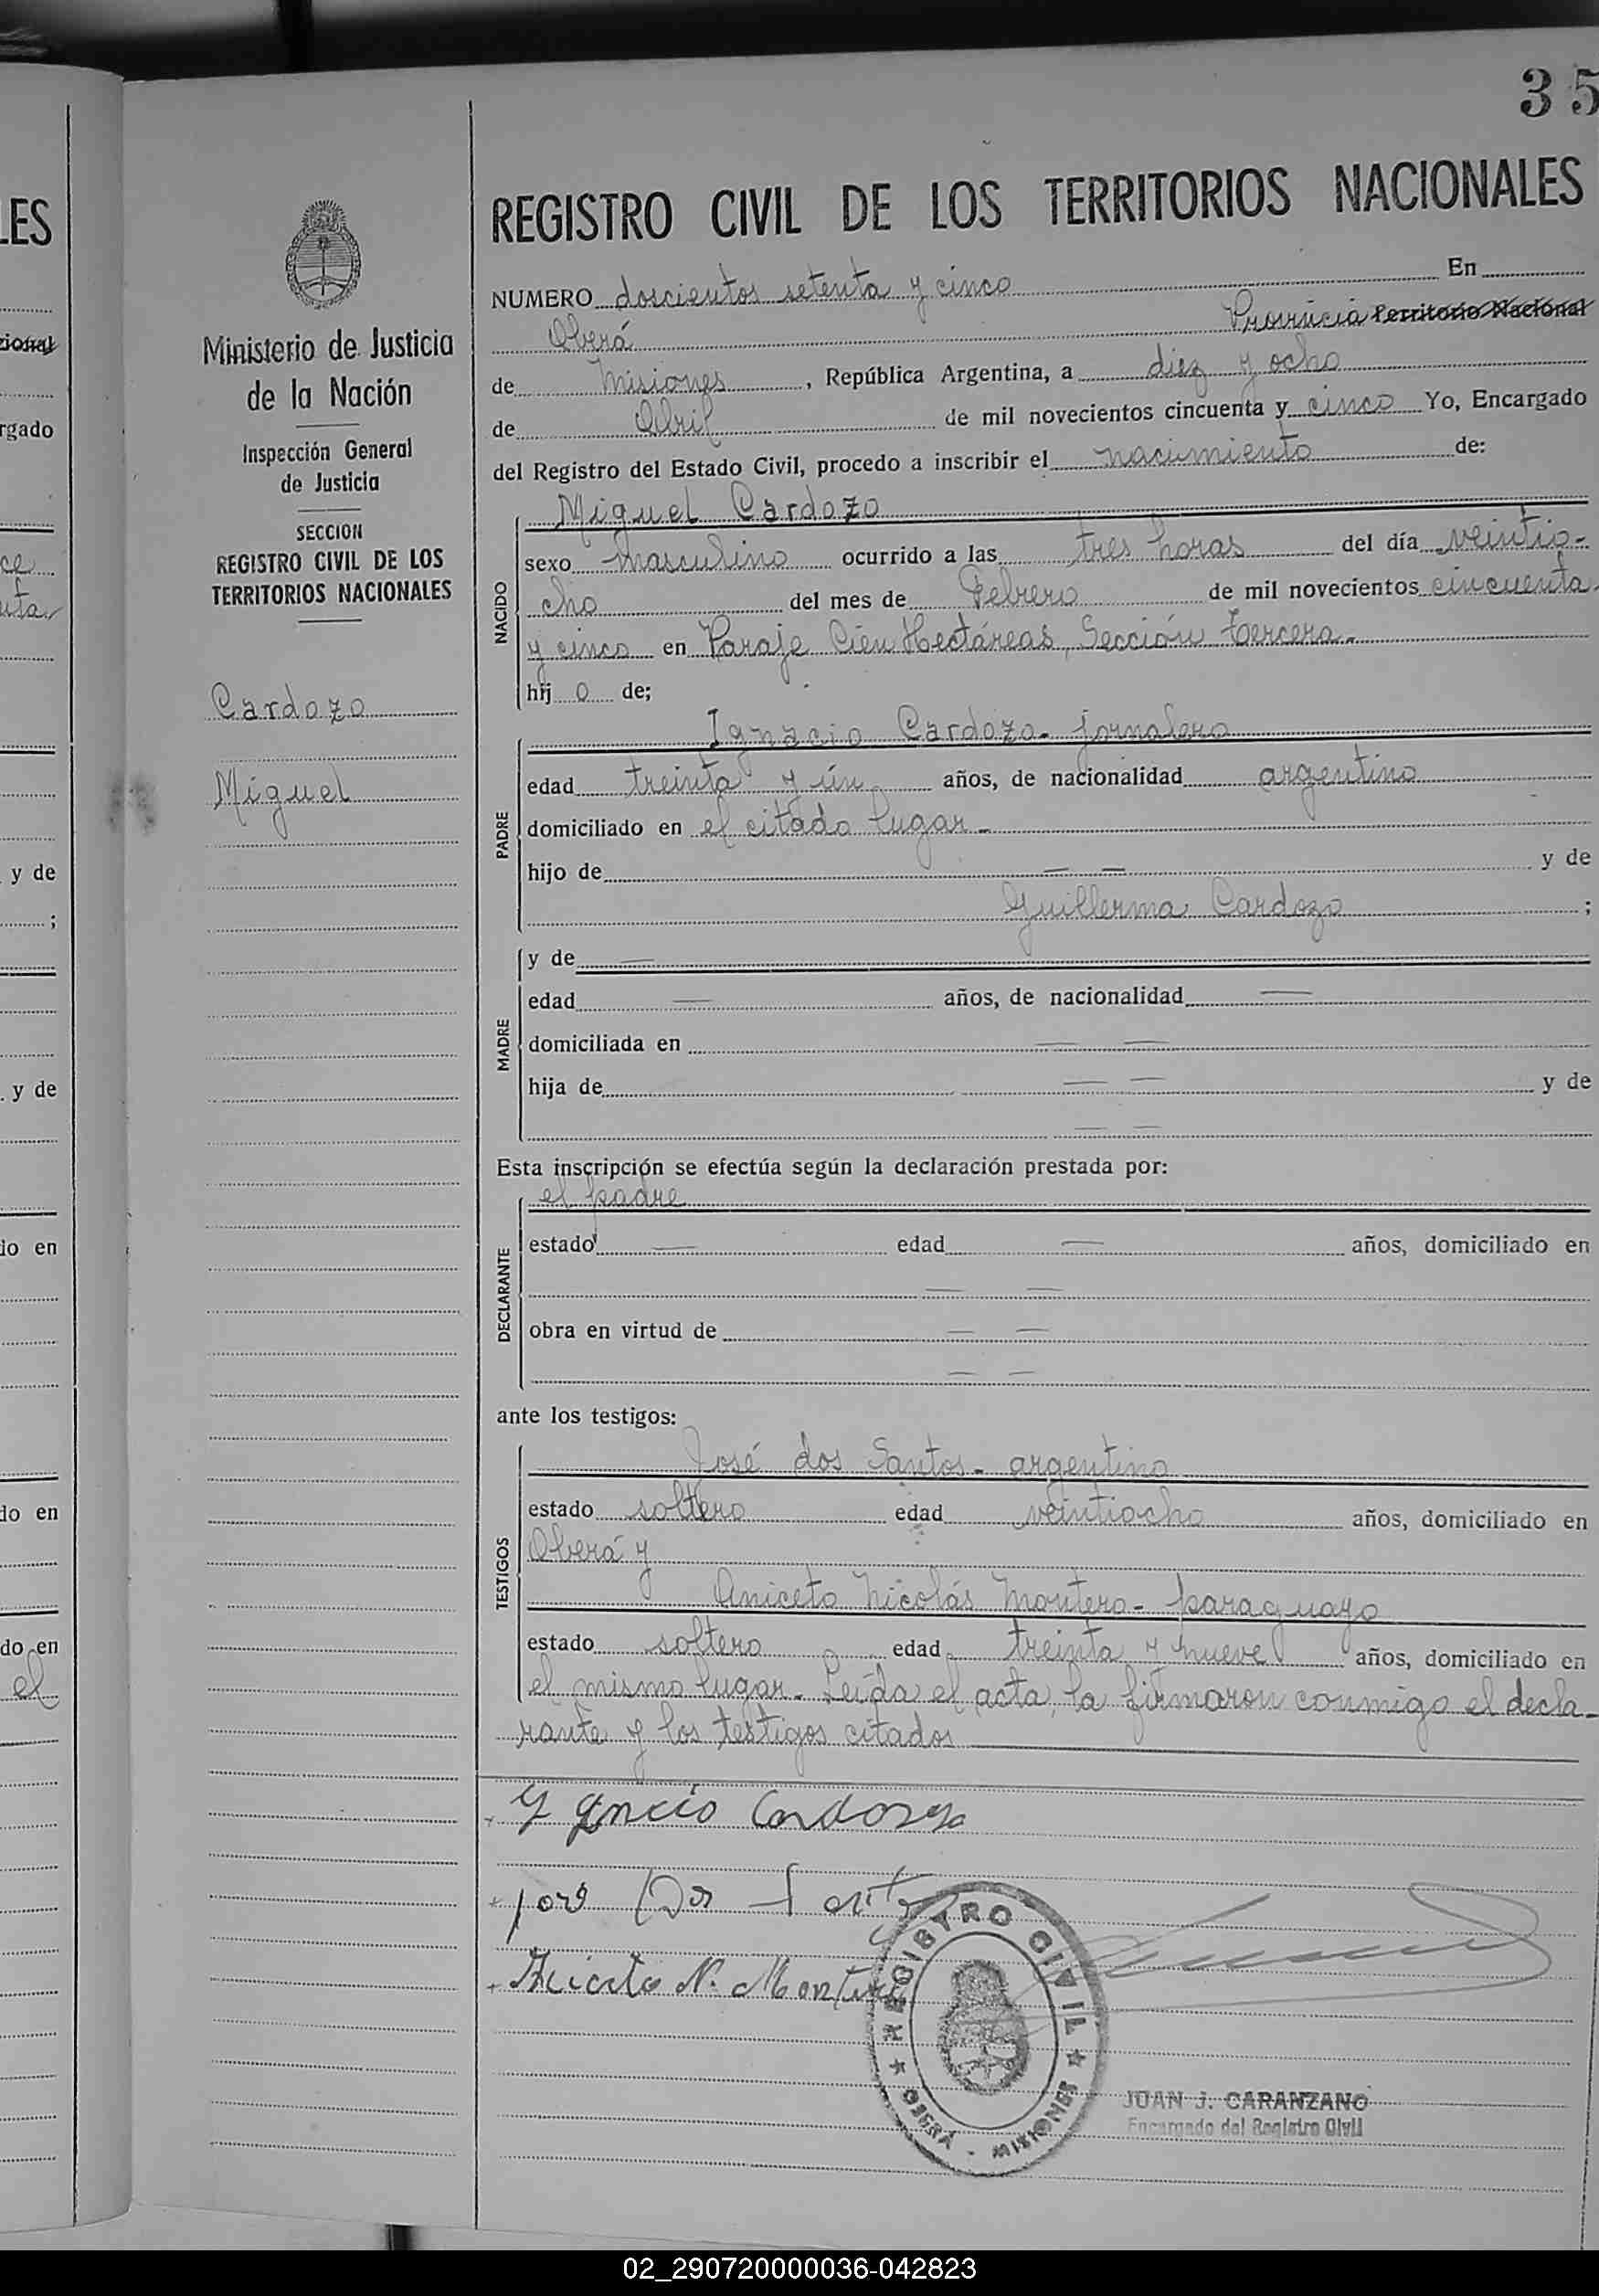 35
REGISTRO CIVIL DE LOS TERRITORIOS NACIONALES
Ministerio de Justicia
de la Nación
Inspección General
de Justicia
SECCION
REGISTRO CIVIL DE LOS
TERRITORIOS NACIONALES
Cardozo
Miguel
NUMERO doscientos setenta y cinco En
Oberá Provincia Territorio Nacional
de Misiones, República Argentina, a diez y ocho
de Abril de mil novecientos cincuenta y cinco Yo, Encargado
del Registro del Estado Civil, procedo a inscribir el nacimiento de:
NACIDO
Miguel Cardozo
sexo masculino ocurrido a las tres horas del día veintio-
cho del mes de Febrero de mil novecientos cincuenta
y cinco en Paraje Cien Hectáreas, Sección tercera-
hij o de;
PADRE
Ignacio Cardozo- jornalero
edad treinta y ún años, de nacionalidad argentino
domiciliado en el citado lugar-
hijo de — — y de
Guillerma Cardozo ;
MADRE
y de —
edad — años, de nacionalidad —
domiciliada en — —
hija de — — y de
— —
Esta inscripción se efectúa según la declaración prestada por:
DECLARANTE
el padre
estado — edad — años, domiciliado en
— —
obra en virtud de — —
— —
ante los testigos:
TESTIGOS
José dos Santos- argentino
estado soltero edad veintiocho años, domiciliado en
Oberá y
Aniceto Nicolás Montero- paraguayo
estado soltero edad treinta y nueve años, domiciliado en
el mismo lugar- Leída el acta, la firmaron conmigo el decla-
rante y los testigos citados
Cardozo
Dos
N. Montero
REGISTRO CIVIL
OBERÁ - MISIONES
JUAN J. CARANZANO
Encargado del Registro Civil
LES
cional
rgado
ce
nta
y de
;
y de
do en
do en
do en
el
02_290720000036-042823